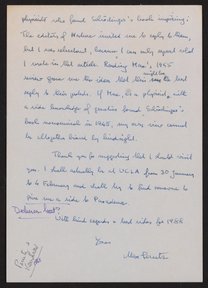 physicists who found Schrödinger's book inspiring.
The editors of Nature invited me to reply to them,
but I was reluctant, because I can only repeat what
I wrote in that article. Reading Max's 1945
review gave me the idea that this might be the best
reply to their points. If Max, as a physicist, with
a wide knowledge of genetics found Schrödinger's
book nonsensical in 1945, my own view cannot
be altogether biased by hindsight.
Thank you for suggesting that I should visit
you. I shall actually be at UCLA from 30 January
to 6 February and shall try to find someone to
give me a ride to Pasadena.
With kind regards & best wishes for 1988
Yours
Max Perutz